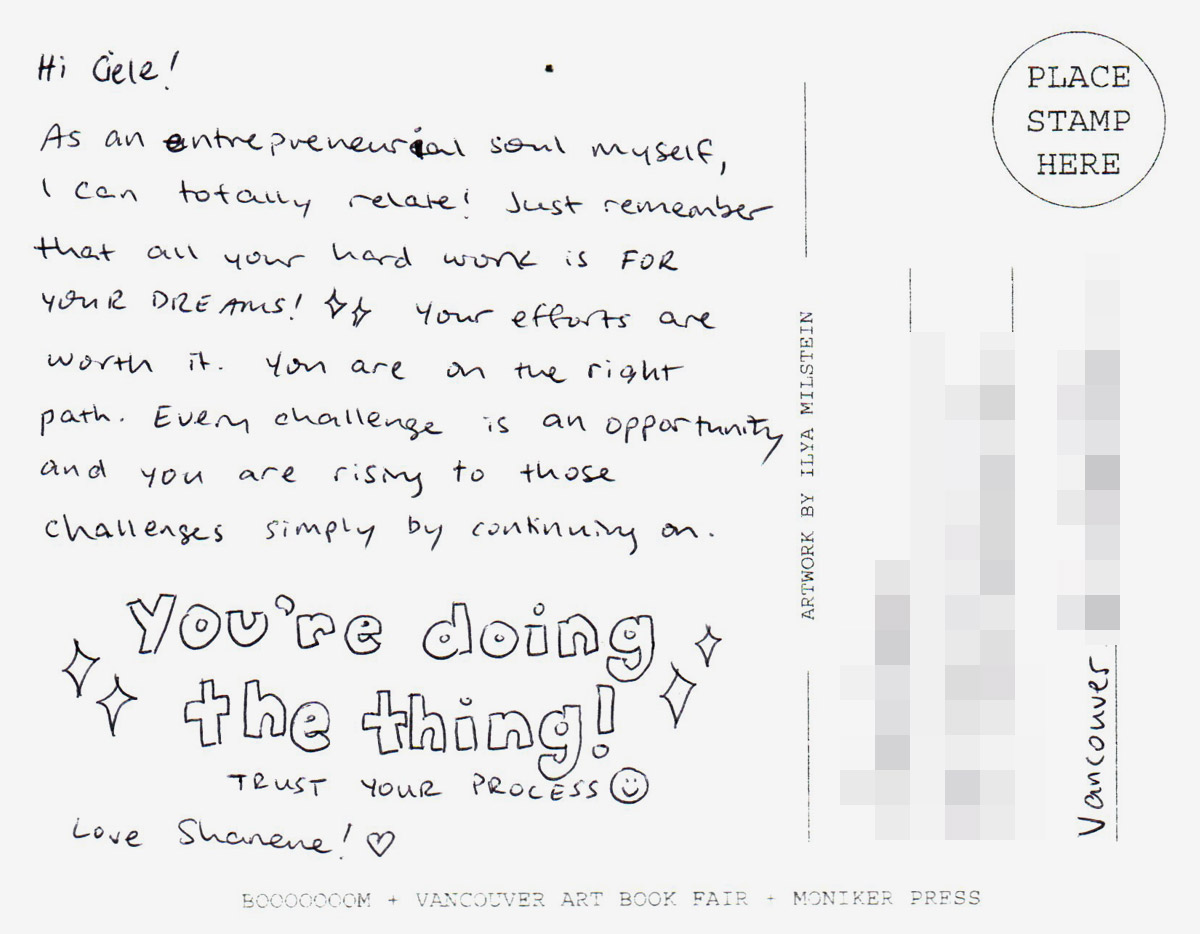 Hi Ciele!
As an entrepreneurial soul myself,
I can totally relate! Just remember
that all your hard work is FOR
YOUR DREAMS! Your efforts are
worth it. You are on the right
path. Every challenge is an opportunity
and you are rising to those
challenges simply by continuing on.
You're doing
the thing!
TRUST YOUR PROCESS
Love Sharene!
PLACE
STAMP
HERE
ARTWORK BY ILYA MILSTEIN
Vancouver
BOOOOOOOM + VANCOUVER ART BOOK FAIR + MONIKER PRESS